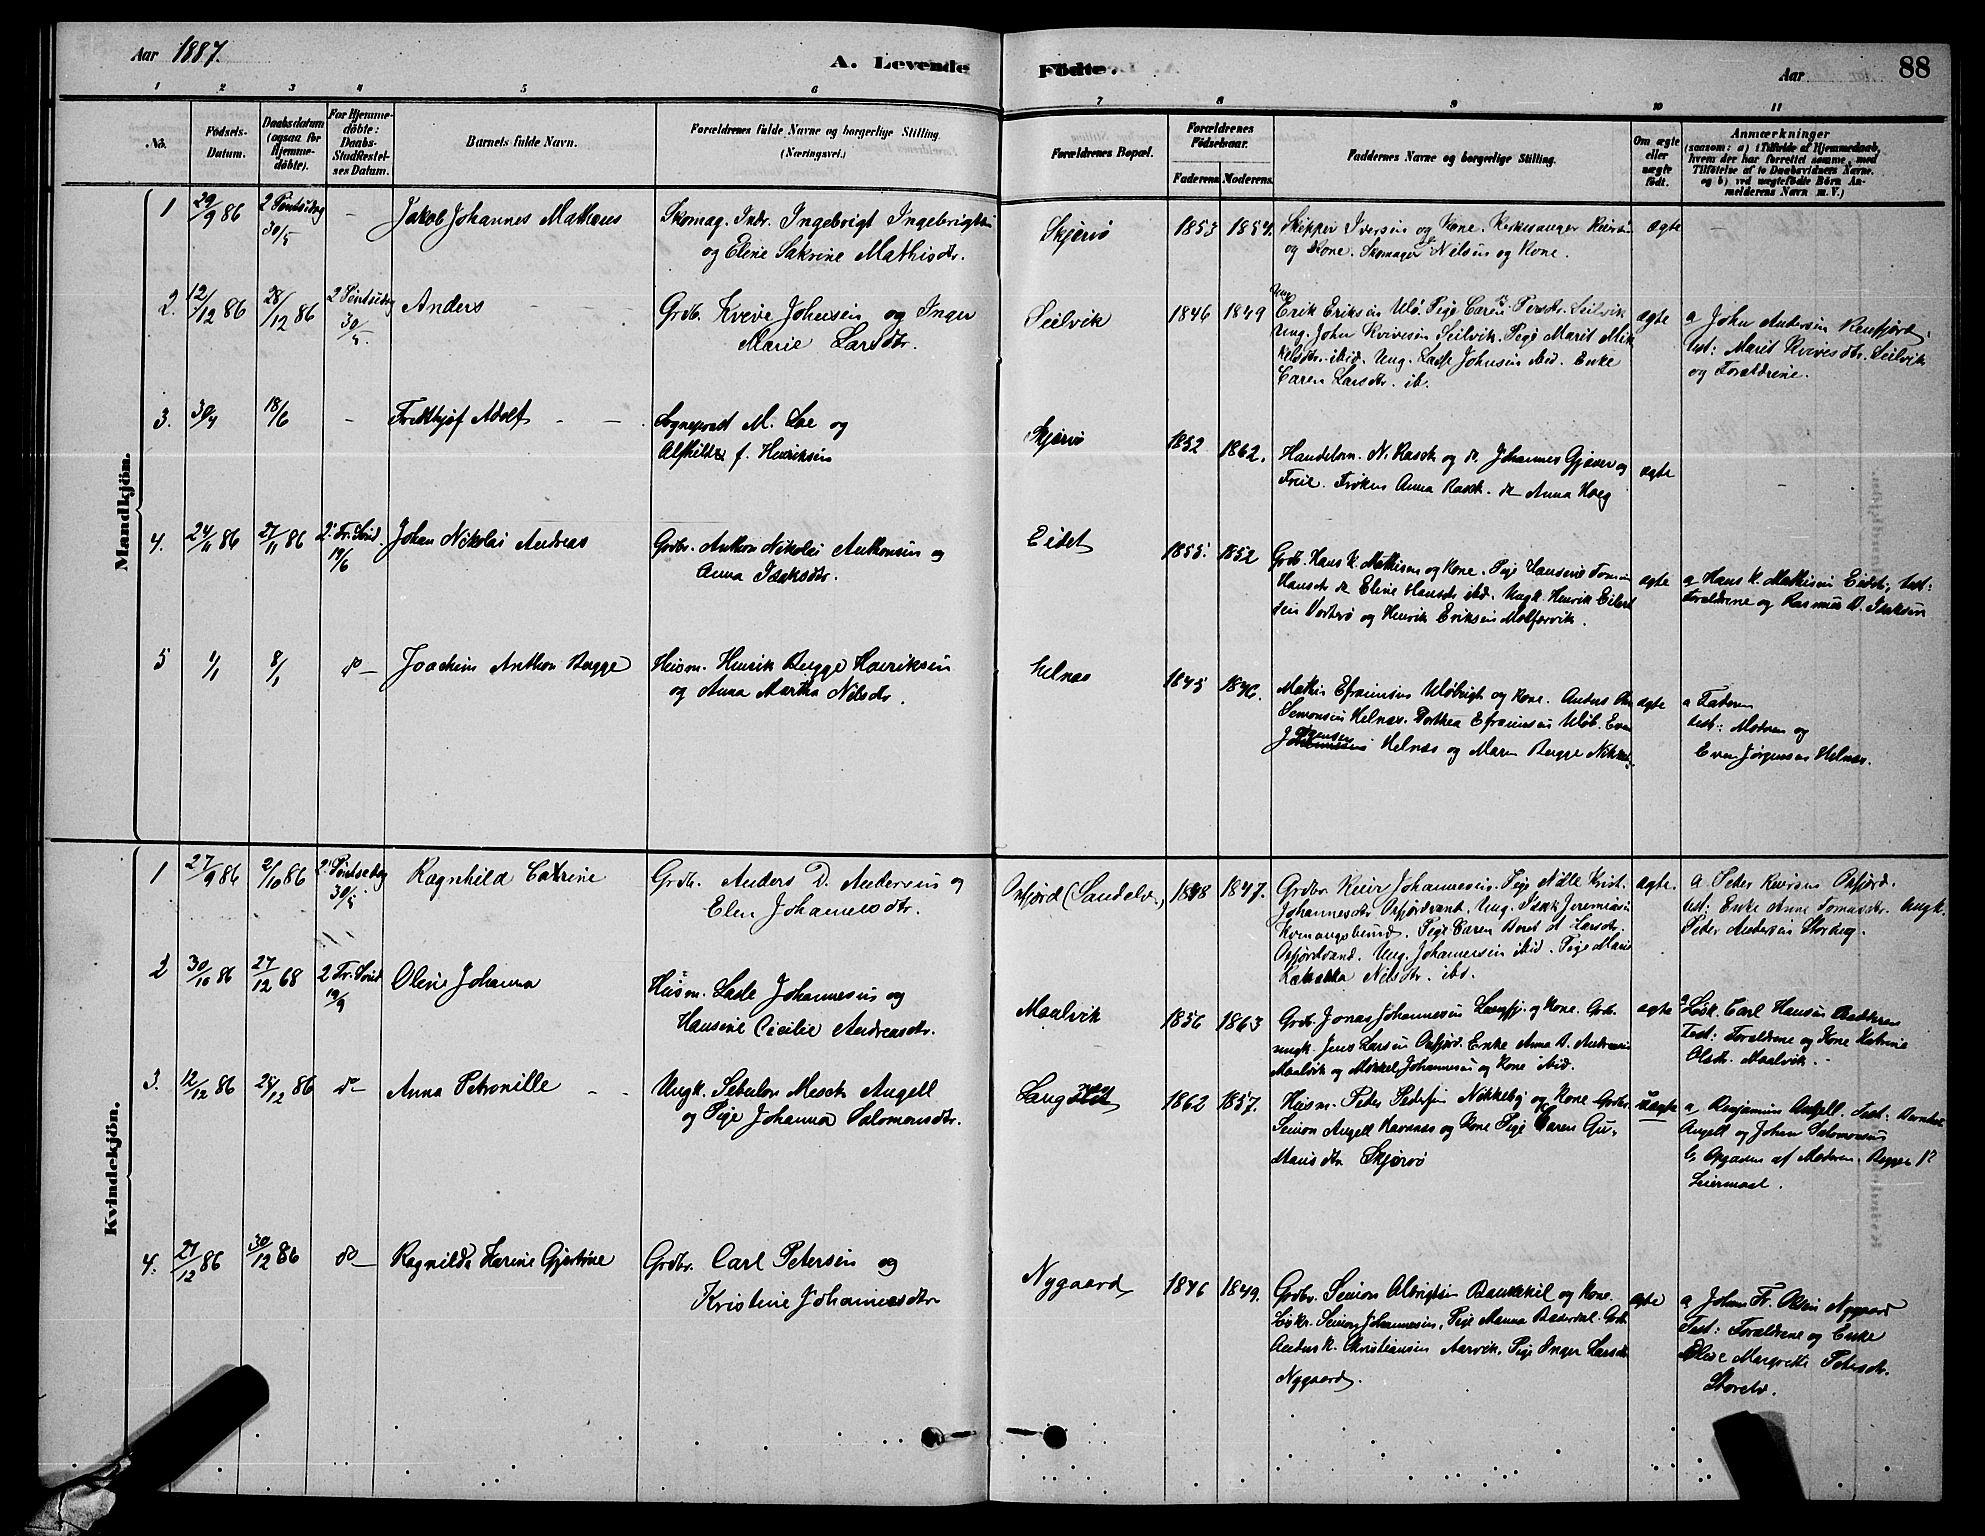 Aar 1887.
A. Levende Fødte.
Aar
88
1 2 3 4 5 6 7 8 9 10 11
No.
Fødsels-Datum.
Daabsdatum (ogsaa for Hjemme-døbte).
For Hjemme-døbte: Daabs-Stadfæstel-ses Datum.
Barnets fulde Navn.
Forældrenes fulde Navne og borgerlige Stilling (Næringsvei.)
Forældrenes Bopæl.
Forældrenes Fødselsaar.
Faderens. Moderens.
Faddernes Navne og borgerlige Stilling.
Om ægte eller uægte født.
Anmærkninger
(saasom: a) i Tilfælde af Hjemmedaab, hvem der har forrettet samme, med Tilføielse af to Daabsvidners Navne. og b) ved uægtefødte Børn Anmelderens Navn m. V.)
Mandkjön.
1 29/9 86 30/5 - Jakob Johannes Mathæus
Skomag. Indr. Ingebrigt Ingebrigtsen
og Eline Sakrine Mathisdtr.
Skjervø 1853 1854.
Skipper Iversen og Kone. Kirkesanger
og Kone. Skomager Nilsen og Kone.
ægte
2. 12/12 86 28/12 86 30/5 Anders
Grdb. Kveve Johnsen og Inger
Marie Larsdtr.
Seilvik 1846 1849
Ung. Erik Eriksen Ulø. Pige Caren Persdtr. Seilvik
Ung. John Kvivesen Seilvik. Pige Marit Mik
kelsdtr. ibid. Ung. Lasse Johnsen ibid. Enke
Caren Larsdtr. ib.
ægte
a John Andersen
Test: Marit Kvivesdtr. Seilvik
og Forældrene.
3. 30/4 18/6 - Fridthjof Adolf
Sogneprest M. Loe og
Alfhilde f. Henriksen
Skjervø 1852 1862.
Handelsm. N. Rasch og do. Johannes Gjæver og
Frue. Frøken Anna Rasch. do Anna Hoeg
ægte
4. 24/11 86 27/11 86 19/6 Johan Nikolai Andreas
Grdbr. Anthon Nikolai Anthonsen og
Anna Isaksdtr.
Eidet 1855. 1852
Grdb. Hans K. Mathisen og Kone. Pige
Hansdtr do Eline Hansdtr ibid. Ungk. Henrik Eilert
sen Vorterø og Henrik Eriksen
ægte
a Hans K. Mathisen Eidet, test:
Forældrene og Rasmus D. Isaksen
5 1/1 8/1 do - Joachim Anthon Bergge
Husm. Henrik Bergge Henriksen
og Anna Martha Nilsdtr.
Helnæs 1845 1846.
Mathis Efraimsen og Kone. Anders
Simonsen Helnæs. Dorthea Efraimsen Even
Jørgensen Helnæs og Maren Bergge
ægte
a Faderen
test: Moderen og
Even Jørgensen Helnæs.
Kvindekjön.
1 27/9 86 2/10 86 30/5 Ragnhild Catrine
Grdb. Anders D. Andersen og
Elen Johannesdtr.
Oxfjord (Sandelv.) 1848 1847.
Grdbr. Reier Johannesen. Pige Nille Krist.
Johannesdtr Oxfjordvand. Ung. Isak Jeremiasen
Pige Caren Beret A Larsdtr.
Oxfjordvand. Ung. Johannesen ibid. Pige Marie
Nilsdtr. ibd.
ægte.
a Peter Reiersen Oxfjord.
test: Enke Anne Tomasdtr. Ungk.
Peder Andersen Storeng.
2 30/10 86 27/12 68 19/9 Oline Johanna
Husm. Lasse Johannesen og
Hansine Cecilie Andreasdtr.
Maalvik 1856 1863
Grdb. Jonas Johannesen Langfj. og Kone. Grdb.
ungk. Jens Larsen Oxfjord. Enke Anna B. Andreasen
Maalvik og Mikkel Johannesen og Kone ibid.
ægte
Carl Hansen Badderen
Test: Forældrene og Kone Katrine
Olsdtr. Maalvik.
3. 12/12 86 25/12 86 do - Anna Petronille
Ungk. Sebulon Mesch Angell
og Pige Johanna Salomonsdtr.
1862 1857.
Husm. Peter Pedersen Nikkeby og Kone. Grdbr.
Simon Angell Havnnæs og Kone Pige Caren
Skjervø
uægte
a Benjamin Angell. Test:
Angell og Johan Salomonsen
b, Opgaven af Moderen. Begges 1ste
Leiermaal.
4. 27/12 86 30/12 86 do - Ragnilda Karine Gjertine
Grdbr. Carl Petersen og
Kristine Johannesdtr
Nygaard 1846 1849.
Grdbr. Simon Albrigtsen og Kone.
Simon Johannesen, Pige Manna Grdb.
Anders K. Christiansen Aarvik. Pige Inger Larsdtr
Nygaard.
ægte
a Johan Fr. Olsen Nygaard
Test: Forældrene og Enke
Elise Margrethe Petersdtr.
Storelv.